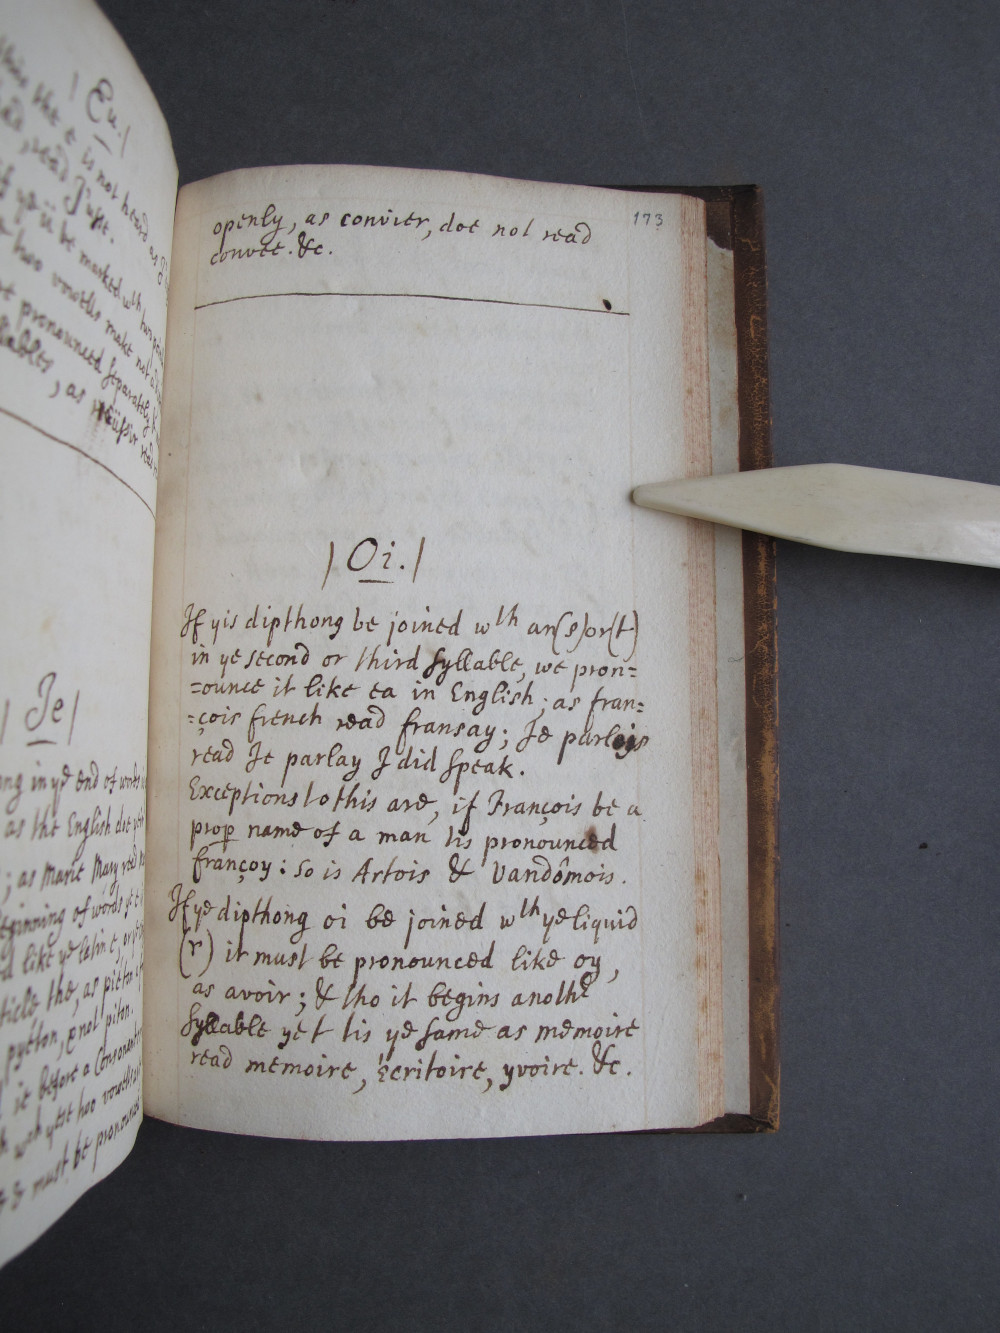 | Eu. |
this the e is not heard as
read J'usse.
if ye ü be marked wth
two vowells make not a
pronounced separately
, as Reüssir
| Ie |
in ye end of words
as the English doe
; as Marie Mary read
beginning of words ye
like ye latin e, or ye
the, as pieton
pyeton, & not piton.
it before a Consonant
wth yese two vowells
& must be pronounced
173
openly, as convier, doe not read
convee. &c.
| Oi. |
If yis dipthong be joined wth an (s) or (t)
in ye second or third syllable, we pron=
=ounce it like ea in English; as fran=
=çois french read fransay; Je parlois
read Je parlay I did speak.
Exceptions to this are, if François be a
prop name of a man tis pronounced
françoy: so is Artois & Vandômois.
If ye dipthong oi be joined wth ye liquid
(r) it must be pronounced like oy,
as avoir; & tho it begins anothe
syllable yet tis ye same as memoire
read memoire, écritoire, yvoire. &c.